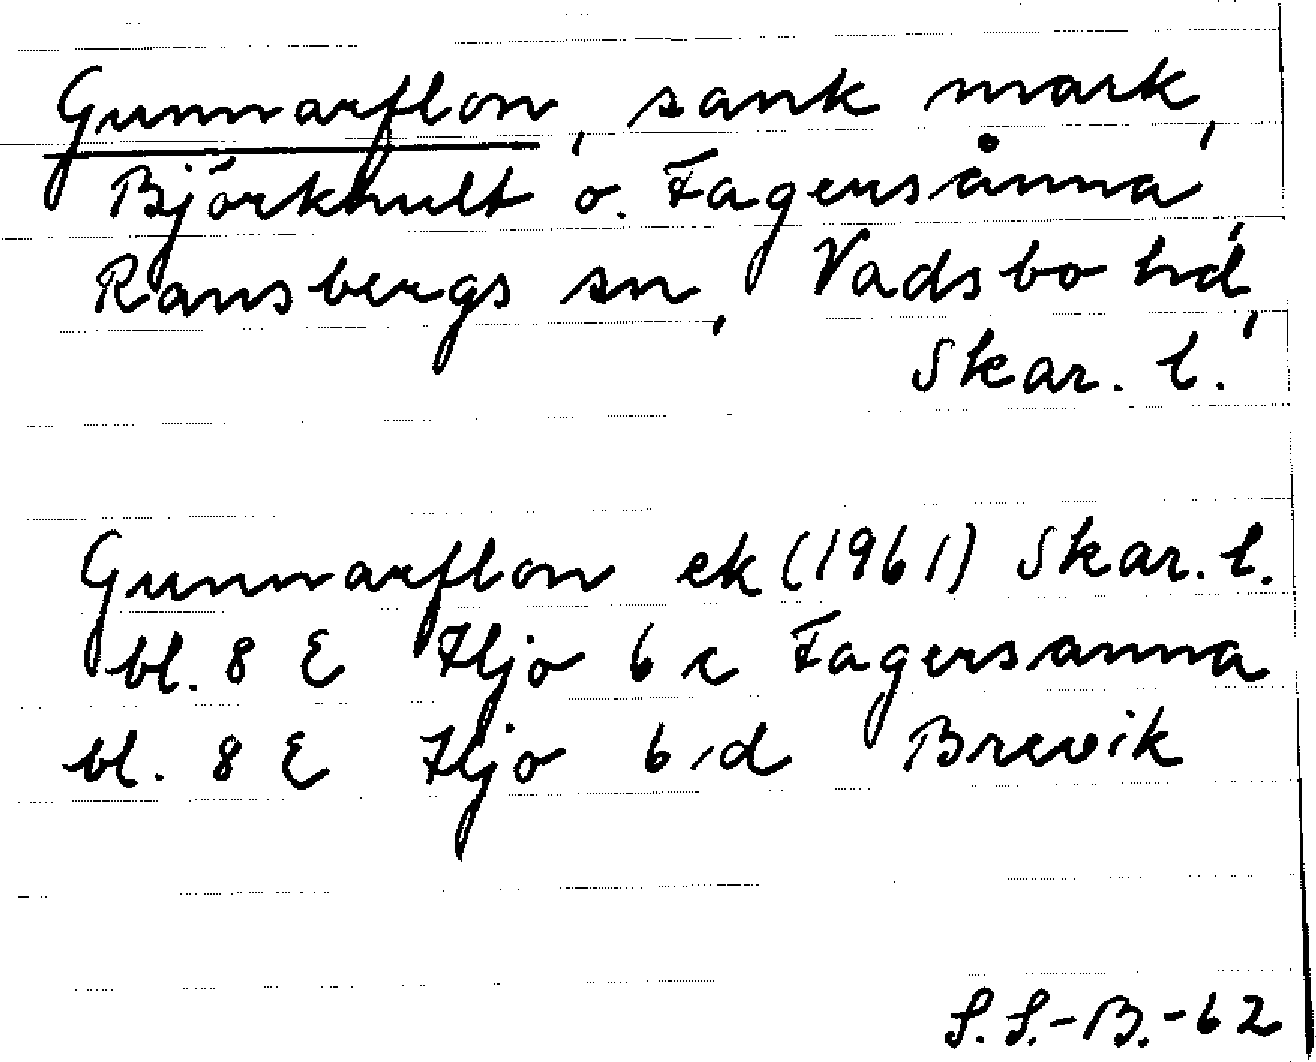 Gunnarflon, sank mark,
Björkhult o. Fagersånna,
Ransbergs sn, Vadsbo hd,
Skar. l.
Gunnarflon ek (1961) Skar. l.
bl. 8 E Hjo 6 c Fagersanna
bl. 8 E Hjo 6 d Brevik
S. S.-B.-62